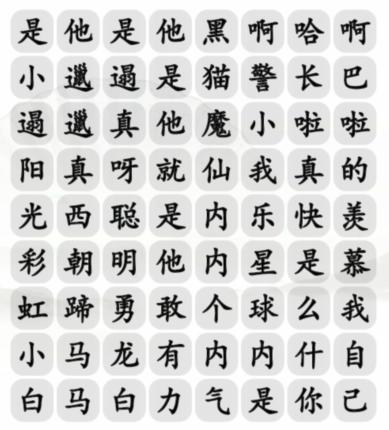 是他是他黑啊哈啊
小邋遢是猫警长巴
遢邋真他魔小啦啦
阳真呀就仙我真的
光西聪是内乐快羡
彩朝明他内星是慕
虹蹄勇敢个球么我
小马龙有内内什自
白马白力气是你己